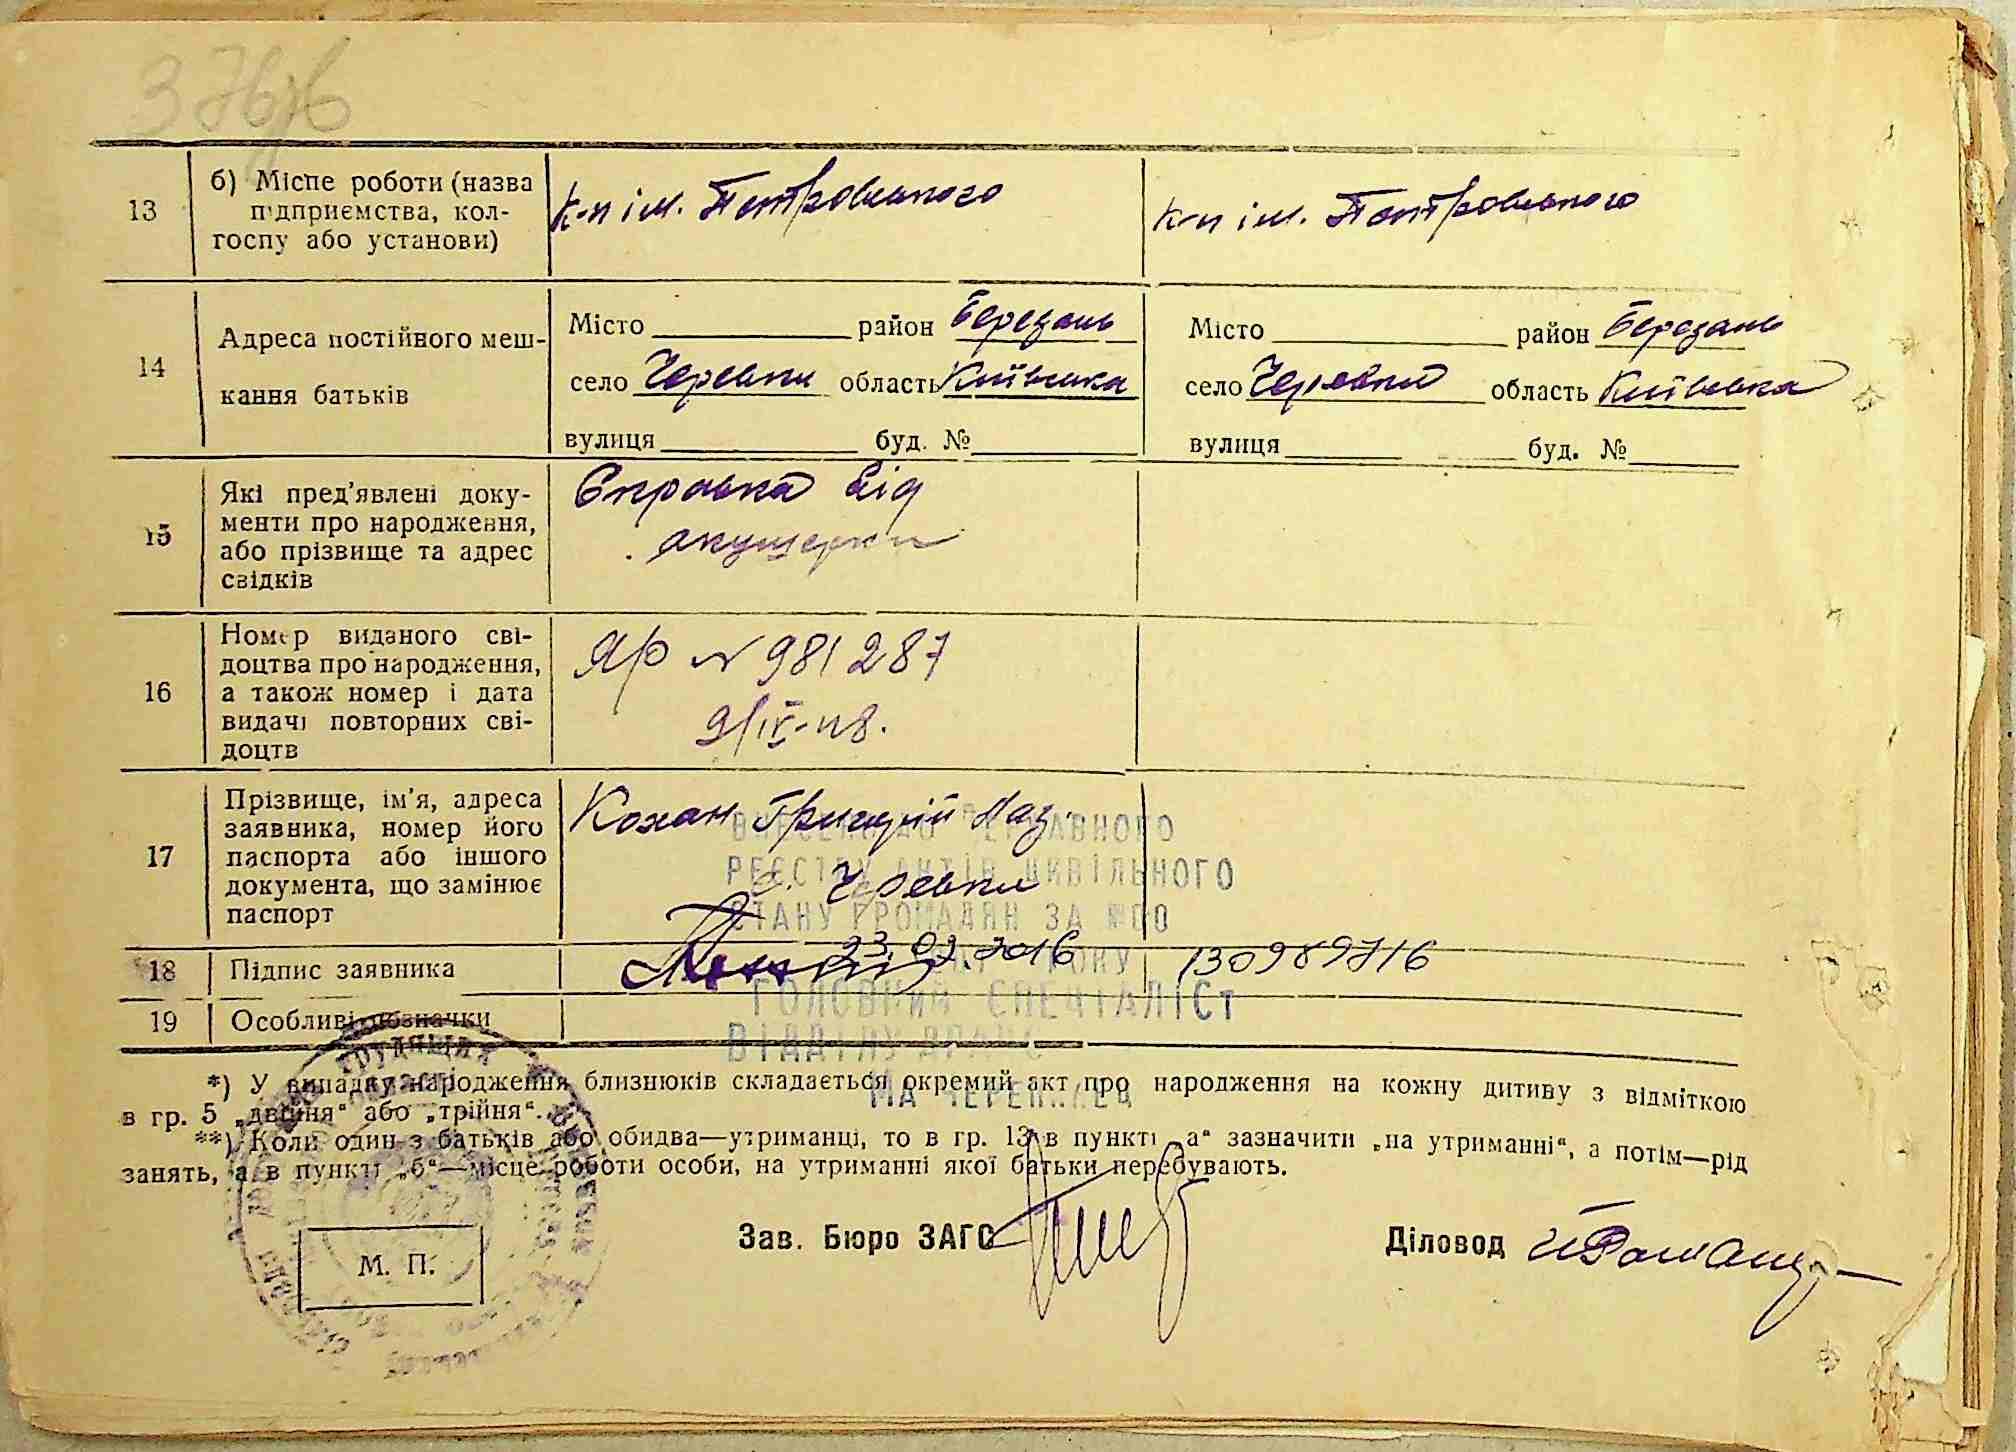 13 б) Місце роботи (назва підприємства, кол-
госпу або установи)
к-п ім. Петровського
к-п ім. Петровського
14 Адреса постійного меш-
кання батьків
Місто район Березань
село Черевки область Київська
вулиця буд. №
Місто район Березань
село Черевки область Київська
вулиця буд. №
15 Які пред'явлені доку-
менти про народження,
або прізвище та адрес
свідків
Справка від
акушерки
16 Номер виданого сві-
доцтва про народження,
а також номер і дата
видачі повторних сві-
доцтв
ЯР № 981287
9/IV-48.
17 Прізвище, ім'я, адреса
заявника, номер його
паспорта або іншого
документа, що замінює
паспорт
Кохан Григорій Лаз.
с. Черевки
ВНЕСЕНО ДО ДЕРЖАВНОГО
РЕЄСТРУ АКТІВ ЦИВІЛЬНОГО
СТАНУ ГРОМАДЯН ЗА №
23.02.2016 РОКУ 130989716
ГОЛОВНИЙ СПЕЦІАЛІСТ
ВІДДІЛУ ДРАЦС
18 Підпис заявника
19 Особливі позначки
*) У випадку народження близнюків складається окремий акт про народження на кожну дитину з відміткою
в гр. 5 „двійня“ або „трійня“.
**) Коли один з батьків або обидва—утриманці, то в гр. 13 в пункті „а“ зазначити „на утриманні“, а потім—рід
занять, а в пункті „б“—місце роботи особи, на утриманні якої батьки перебувають.
Зав. Бюро ЗАГС
Діловод
М. П.